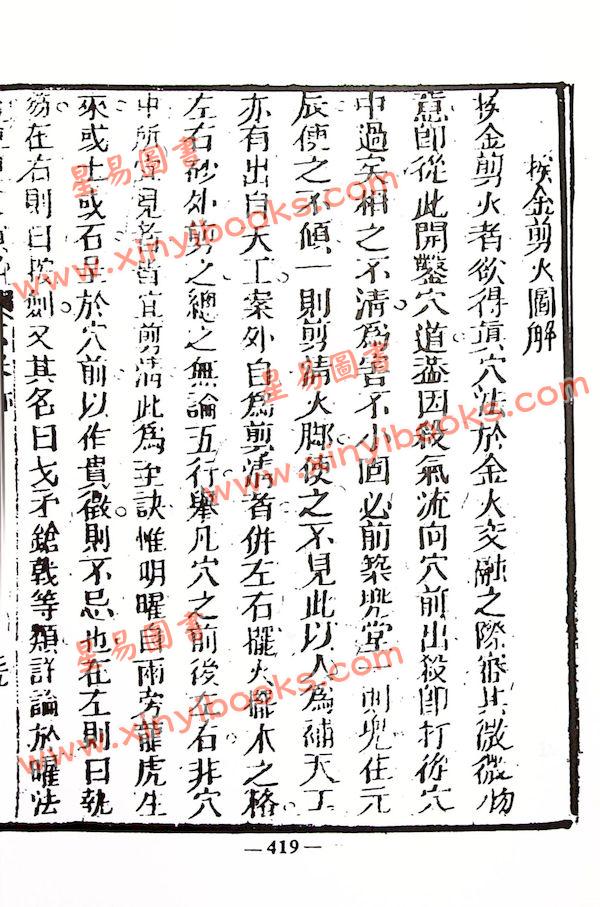 挨金剪火圖解
挨金剪火者欲得真穴法於金火交融之際審其微微吻
意卽從此開鑿穴道蓋因殺氣流向穴前出殺卽打後穴
中過矣相之不清為害不小固必前築兜堂一則兜住元
辰使之不傾一則剪清火脚使之不見此以人為補天工
亦有出自天工案外自為剪清者併左右擺火擺木之格
左右砂外剪之總之無論五行舉凡穴之前後左右非穴
中所宜見者皆宜剪清此為至訣惟明曜自兩旁龍虎生
來或土或石呈於穴前以作貴徵則不忌也在左則曰執
笏在右則曰按劍又其名曰戈矛鎗戟等類詳論於曜法
— 419 —
星易圖書
www.xinyibooks.com
星易圖書
www.xinyibooks.com
星易圖書
www.xinyibooks.com